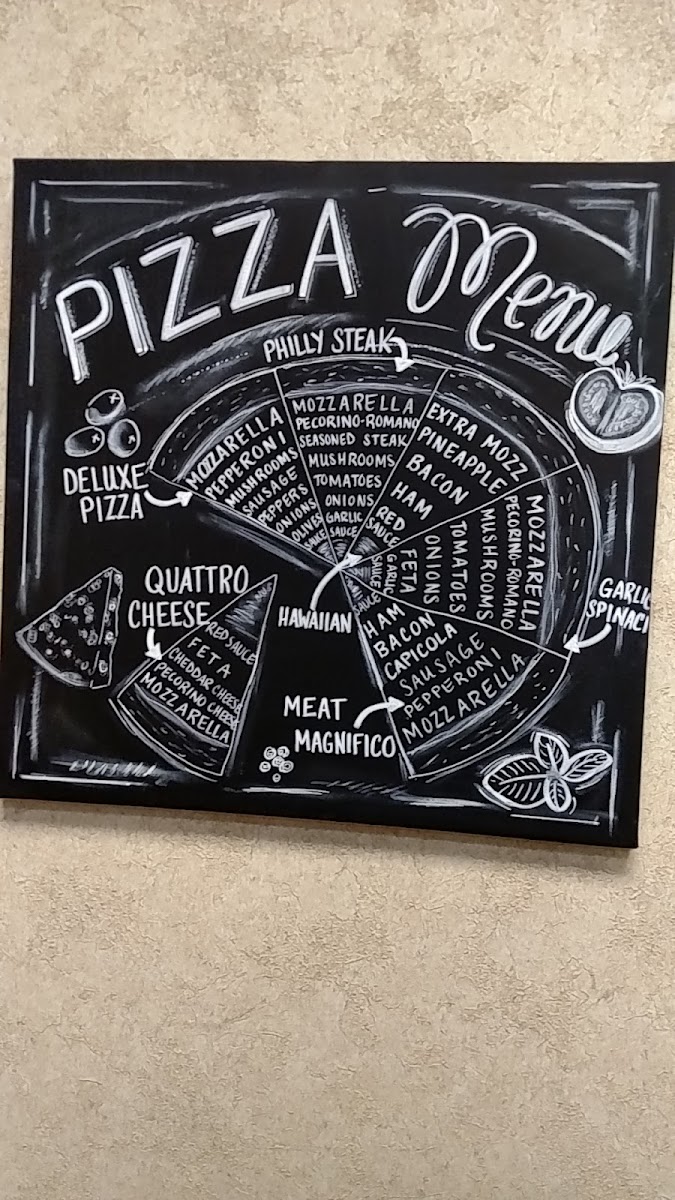 PIZZA Menu
PHILLY STEAK
MOZZARELLA
PECORINO-ROMANO
SEASONED STEAK
MUSHROOMS
TOMATOES
ONIONS
GARLIC
SAUCE
DELUXE
PIZZA
MOZZARELLA
PEPPERONI
MUSHROOMS
SAUSAGE
PEPPERS
ONIONS
OLIVES
EXTRA MOZZ
PINEAPPLE
BACON
HAM
RED
SAUCE
HAWAIIAN
MOZZARELLA
PECORINO-ROMANO
MUSHROOMS
TOMATOES
ONIONS
FETA
GARLIC
SAUCE
GARLIC
SPINACI
HAM
BACON
CAPICOLA
SAUSAGE
PEPPERONI
MOZZARELLA
MEAT
MAGNIFICO
QUATTRO
CHEESE
RED SAUCE
FETA
CHEDDAR CHEESE
PECORINO CHEESE
MOZZARELLA